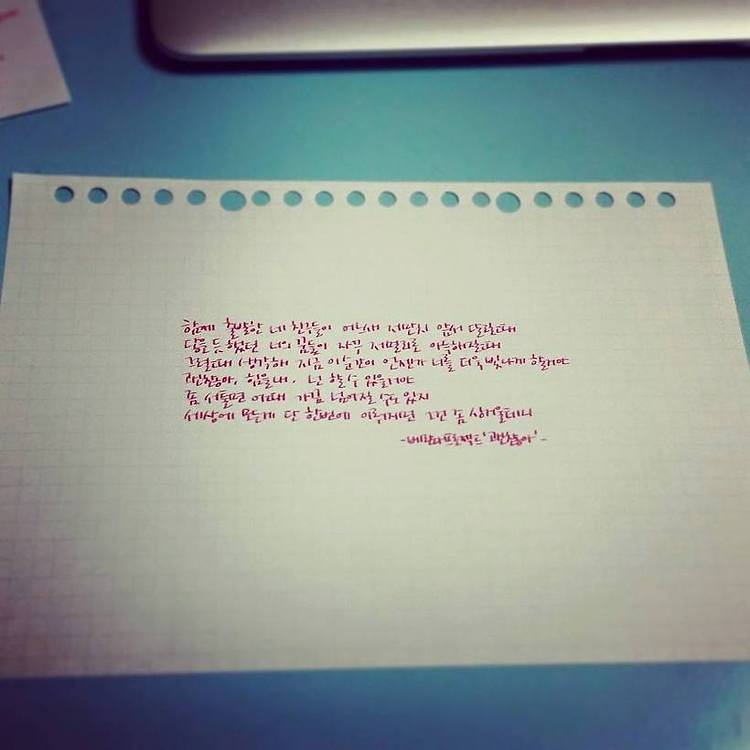 함께 출발한 네 친구들이 어느새 저만치 앞서 달릴때
닿을 듯 했던 너의 꿈들이 자꾸 저멀리로 아득해질때
그럴때 생각해 지금 이 순간이 언젠가 너를 더욱 빛나게 할거야
괜찮아, 힘을 내. 넌 할 수 있을거야
좀 서툴면 어때 가끔 넘어질 수도 있지
세상에 모든게 단 한번에 이뤄지면 그건 좀 싱거울테니
-베란다프로젝트'괜찮아'-